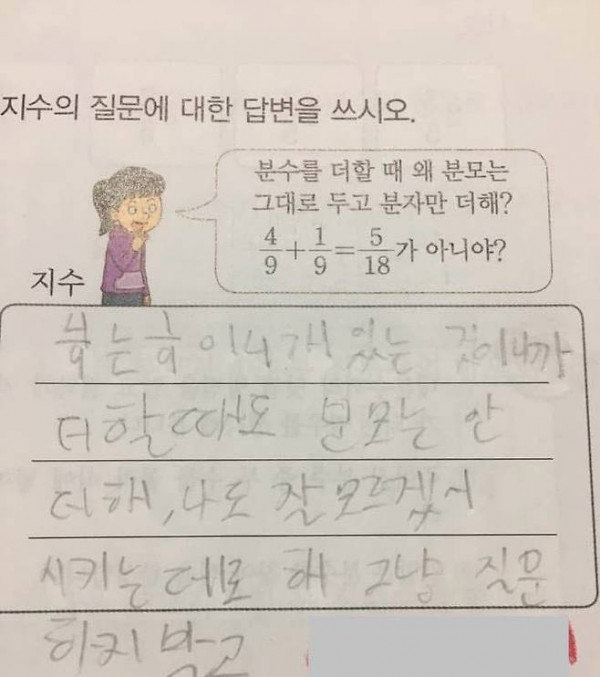 지수의 질문에 대한 답변을 쓰시오.
분수를 더할 때 왜 분모는
그대로 두고 분자만 더해?
4/9+1/9=5/18가 아니야?
지수
4/9는 1/9이 4개 있는 것이니까
더할때도 분모는 안
더해, 나도 잘 모르겠서
시키는데로 해 그냥 질문
하지 박고